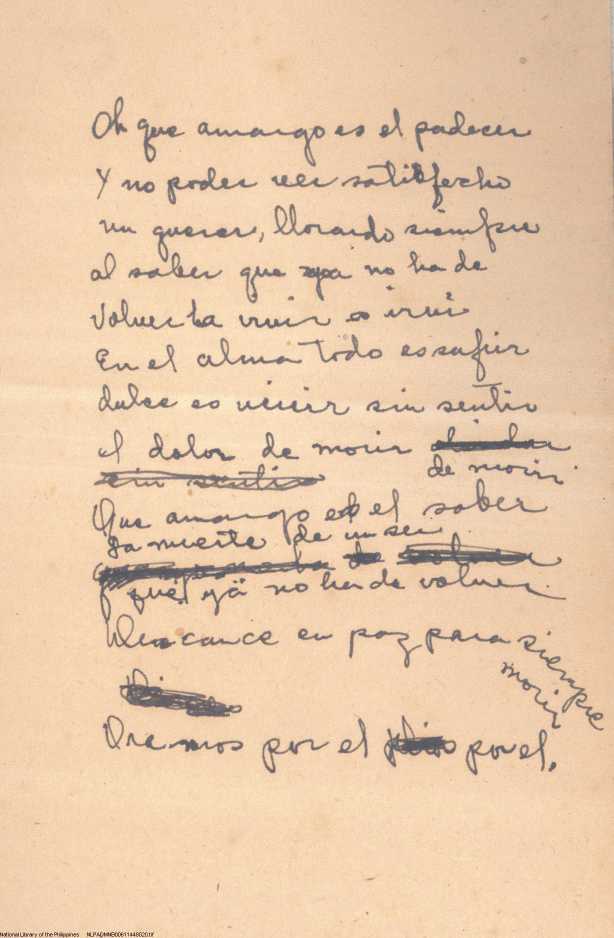 Oh que amargo es el padecer
Y no poder ver satisfecho
un querer, llorando siempre
al saber que ya no ha de
volver
En el alma todo es sufrir
dulce es vivir sin sentir
el dolor de morir
sin sentir
de morir
Que amargo es el saber
La muerte de un ser
que ya no ha de volver
Descance en paz para siempre
morir
Oremos por el por el.
National Library of the Philippines NLPADMNB00611448020.tif